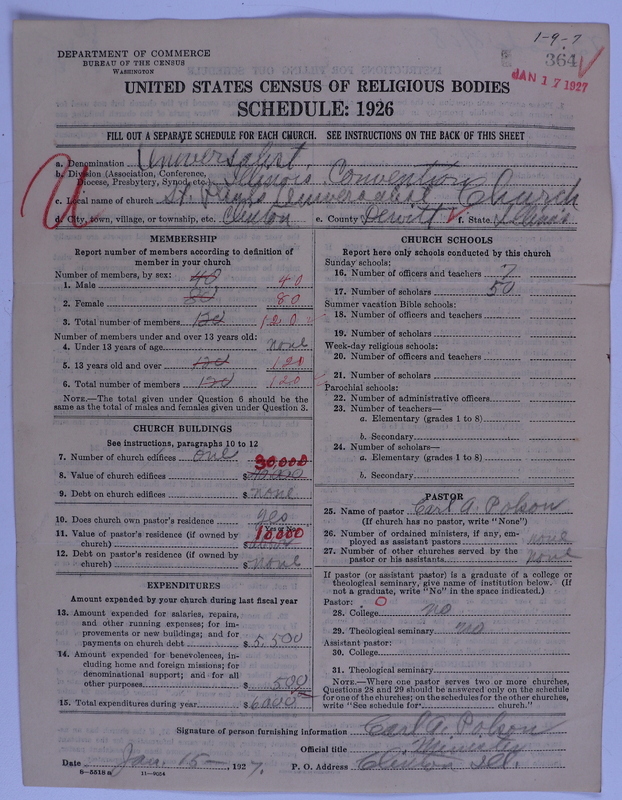 1-9-7
DEPARTMENT OF COMMERCE
BUREAU OF THE CENSUS
WASHINGTON
364
JAN 17 1927
UNITED STATES CENSUS OF RELIGIOUS BODIES
SCHEDULE: 1926
FILL OUT A SEPARATE SCHEDULE FOR EACH CHURCH. SEE INSTRUCTIONS ON THE BACK OF THIS SHEET
U
a. Denomination Universalist
b. Division (Association, Conference, Diocese, Presbytery, Synod, etc.) Illinois Convention
c. Local name of church Universalist Church
d. City, town, village, or township, etc. Clinton e. County Dewitt f. State Illinois
MEMBERSHIP
Report number of members according to definition of
member in your church
Number of members, by sex:
1. Male 40 40
2. Female 80 80
3. Total number of members 120 120
Number of members under and over 13 years old:
4. Under 13 years of age none
5. 13 years old and over 120 120
6. Total number of members 120 120
NOTE.—The total given under Question 6 should be
same as the total of males and females given under Question 3.
CHURCH BUILDINGS
See instructions, paragraphs 10 to 12
7. Number of church edifices one
8. Value of church edifices $ 30,000
9. Debt on church edifices $ none
10. Does church own pastor's residence yes
(Yes or No)
11. Value of pastor's residence (if owned by
church) $ 10000
12. Debt on pastor's residence (if owned by
church) $ none
EXPENDITURES
Amount expended by your church during last fiscal year
13. Amount expended for salaries, repairs,
and other running expenses; for im-
provements or new buildings; and for
payments on church debt $ 5,500
14. Amount expended for benevolences, in-
cluding home and foreign missions; for
denominational support; and for all
other purposes $ 500
15. Total expenditures during year $ 6000
CHURCH SCHOOLS
Report here only schools conducted by this church
Sunday schools:
16. Number of officers and teachers 7
17. Number of scholars 50
Summer vacation Bible schools:
18. Number of officers and teachers
19. Number of scholars
Week-day religious schools:
20. Number of officers and teachers
21. Number of scholars
Parochial schools:
22. Number of administrative officers
23. Number of teachers—
a. Elementary (grades 1 to 8)
b. Secondary
24. Number of scholars—
a. Elementary (grades 1 to 8)
b. Secondary
PASTOR
25. Name of pastor Carl A. Polson
(If church has no pastor, write "None")
26. Number of ordained ministers, if any, em-
ployed as assistant pastors none
27. Number of other churches served by the
pastor or his assistants none
If pastor (or assistant pastor) is a graduate of a college or
theological seminary, give name of institution below. (If
not a graduate, write "No" in the space indicated.)
Pastor: 0
28. College no
29. Theological seminary no
Assistant pastor:
30. College
31. Theological seminary
NOTE.—Where one pastor serves two or more churches,
Questions 28 and 29 should be answered only on the schedule
for one of the churches; on the schedules for the other churches,
write "See schedule for church."
Signature of person furnishing information Carl A. Polson
Official title Minister
Date Jan. 15 —, 1927. P. O. Address Clinton Ill.
8—5518 a 11—9054